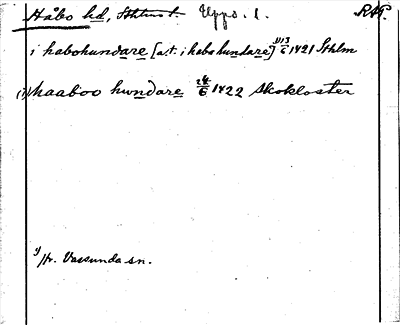 Håbo hd, Sthlms l. Upps. l. RAP.
i habohundare [a.t. i habohundare] 1) 13/6 1421 Sthlm
(i) haaboo hundare 24/6 1422 Skokloster
1) Fr. Vassunda sn.